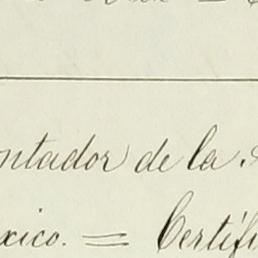 ntador de la
xico. = Certifi